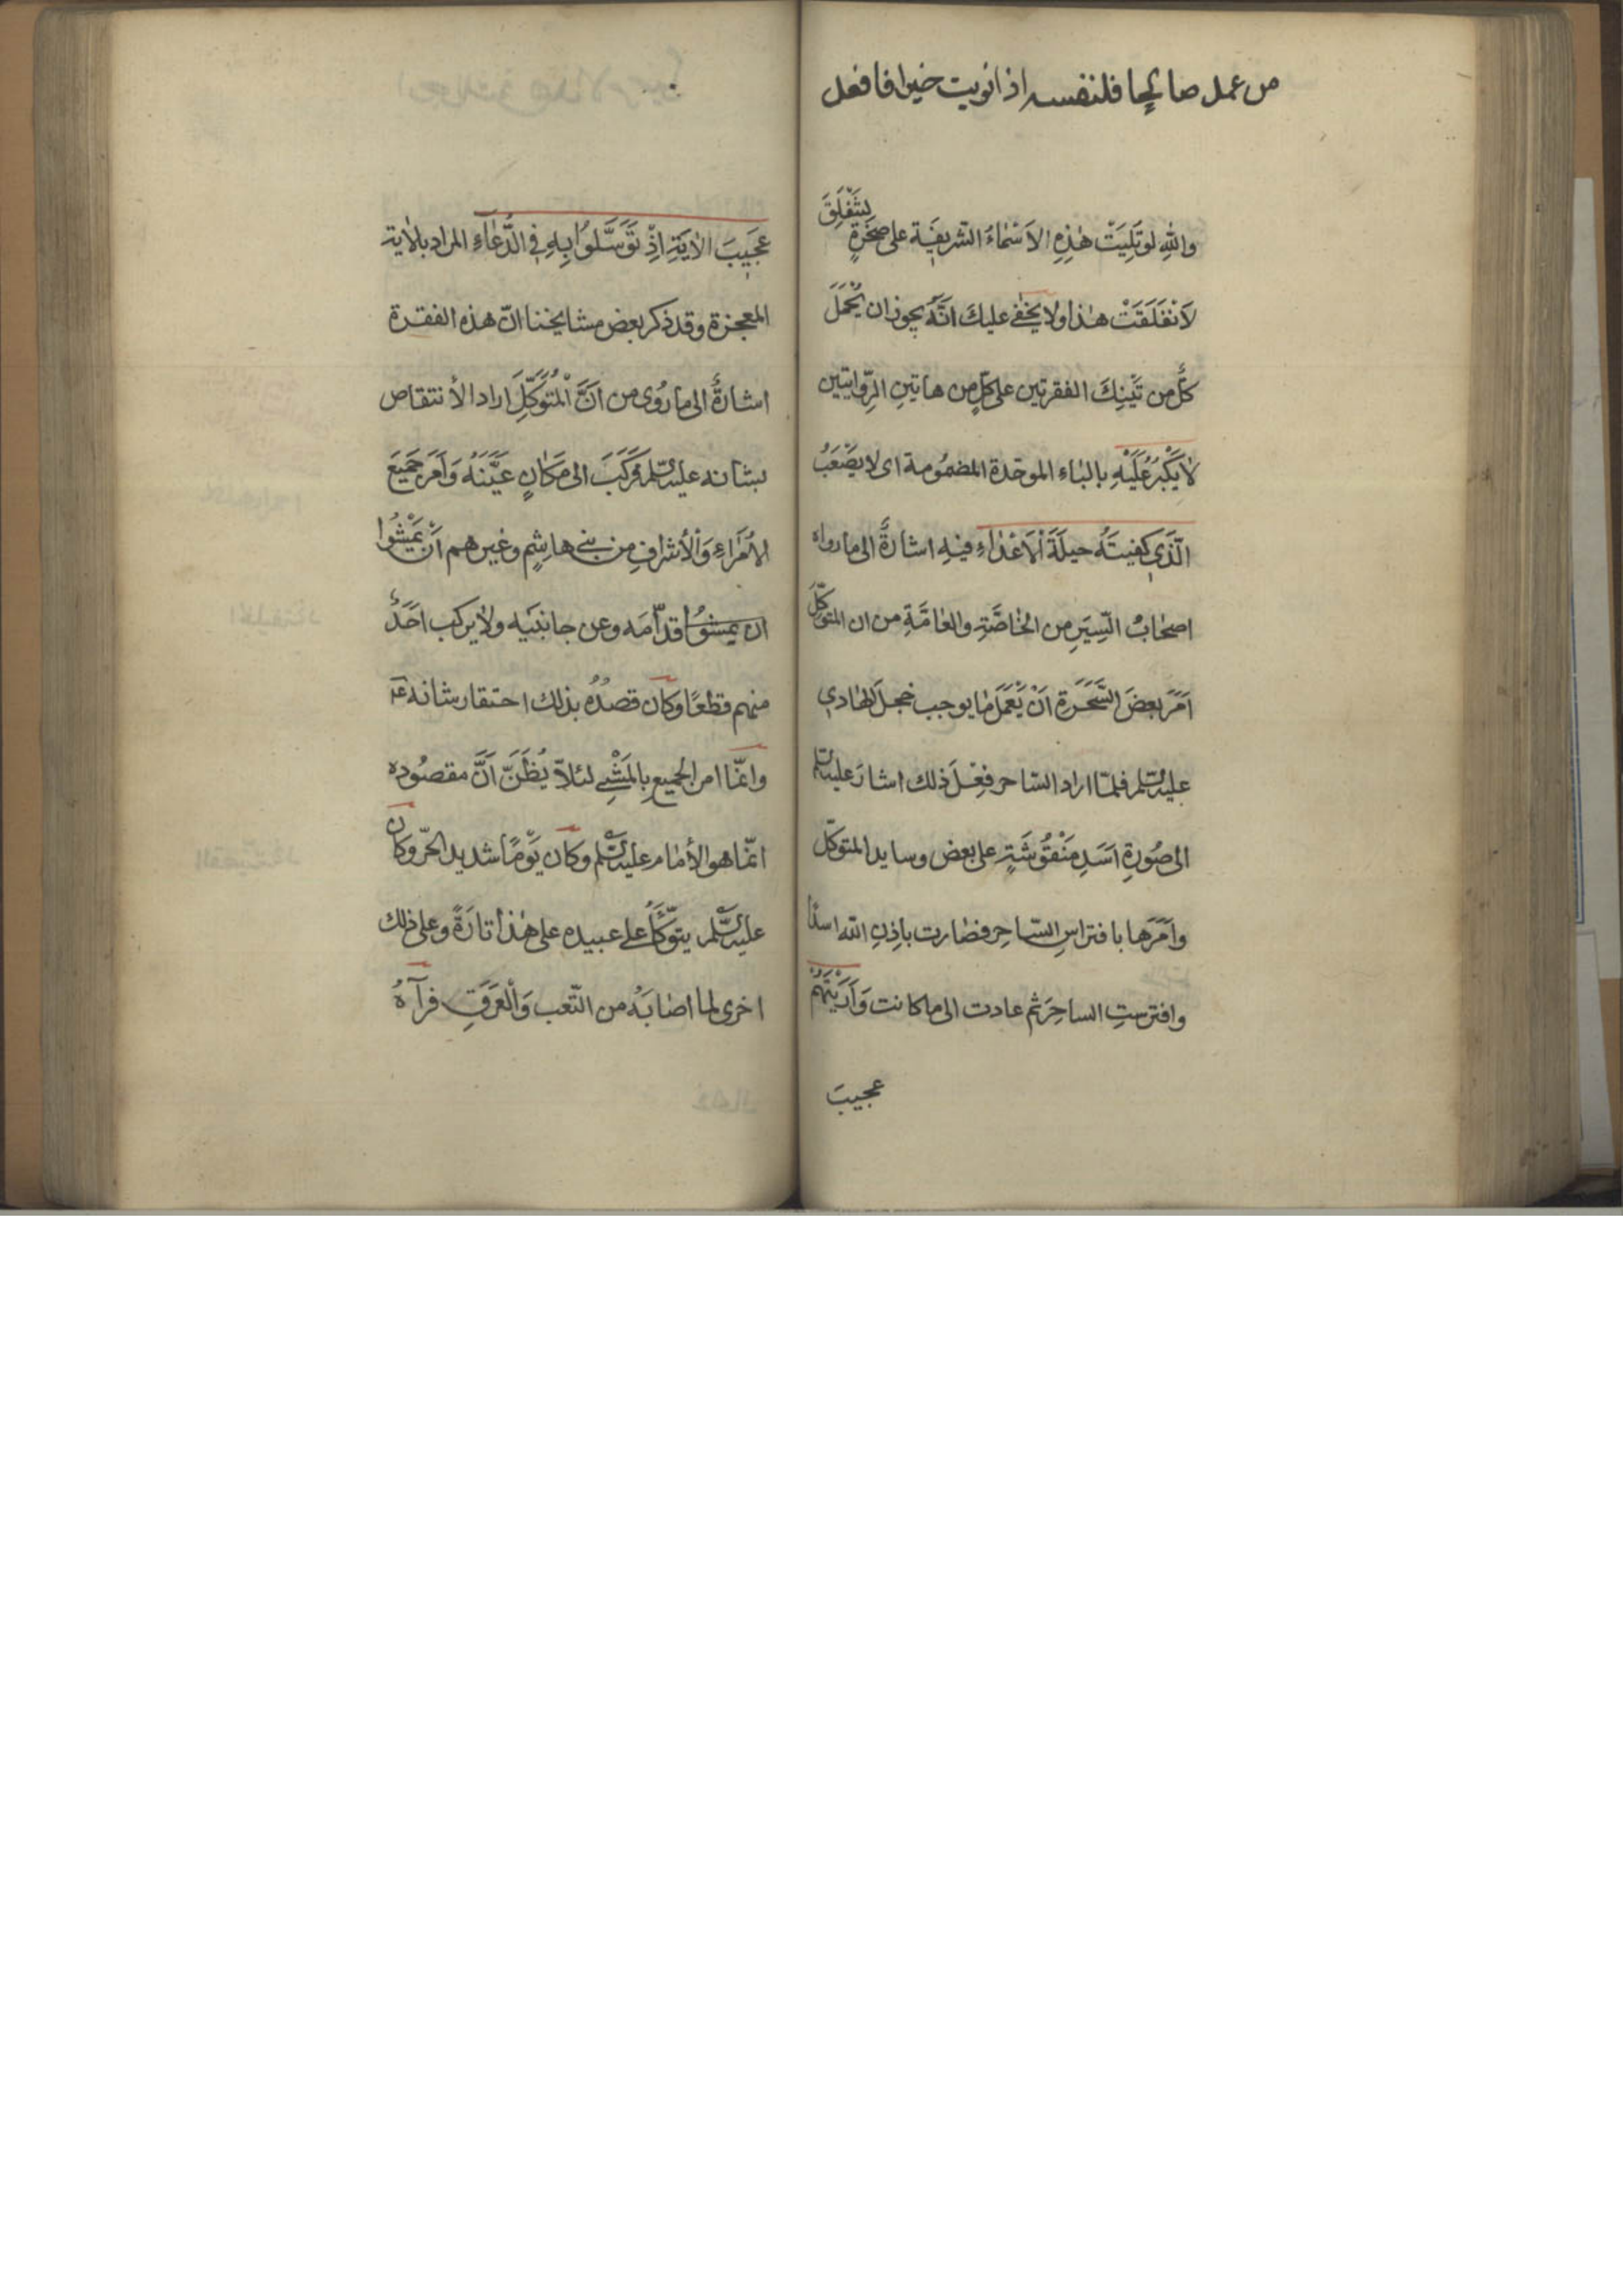 من عمل صالحا فلنفسه اذا نويت خيرا فافعل
والله لو تُلِيَتْ هٰذِهِ الاَسْمٰاءُ الشريفَة على صَخْرَةٍ لتَنْفَلِقَ
لَانْفَلَقَتْ هٰذا ولا يخفٰى عليكَ انَّهُ يجوز ان يُحْمَلَ
كلٌّ من تَيْنِكَ الفقرتين على كلٍّ من هاتين الرِّوايتين
لٰا يَكْبُرُ عَلَيْهِ بالبٰاء الموحّدة المضمُومة اى لا يَصْعَبُ
الَّذي كفيتَهُ حيلَةَ الْاَعْدٰاءِ فيهِ اشارَةٌ الى ما رواه
اصحٰابُ السِّيَرِ من الخاصَّةِ والعٰامَّةِ من ان المتوكّلَ
اَمَرَ بعضَ السَّحَرَةِ اَنْ يَعْمَلَ مٰا يوجب خجلَ الهٰادي
عليه السّلم فلمّا اراد السّاحر فِعْلَ ذلك اشارَ عليه السّلم
الى صُورةِ اَسَدٍ مَنْقُوشَةٍ على بعض وسايد المتوكّل
وَاَمَرَها بافتراسِ السّاحِرِ فصٰارت باِذنِ الله اسدًا
وافترستِ الساحِرَ ثم عادت الى ما كانت وَاَرَيْتَهُمْ
عجيبَ
عَجيبَ الاٰيَةِ اِذْ تَوَسَّلُوا بِهِ فِي الدُّعٰاۤءِ المراد بالاٰية
المعجزة وقد ذكر بعض مشايخنا انّ هذه الفقرة
اشارةٌ الى ما رُوى من اَنَّ الْمُتَوَكِّلَ اراد الأنتقاص
بشانه عليه السّلم فَرَكَبَ الى مَكٰانٍ عَيَّنَهُ وَاَمَرَ جَميعَ
الأمَرٰاءِ وَالْأشرافِ من بنى هاشِمٍ وغيرهم اَنْ يَمْشُوا
ان يمشوُا قدّامَه وعن جانبَيْه ولا يركب اَحَدٌ
منهم قطعًا وكان قصدُهُ بذلك احتقار شانه ع
وانّمٰا امر الجميع بِالمَشْيِ لئلّا يُظَنَّ اَنَّ مقصُوده
انّمٰا هو الأمٰام عليه السّلم وكان يَوْمًا شديد الحَرّ وكان
عليه السّلم يتوَكَّأُ على عبيده على هٰذا تٰارَةً وعلى ذلك
اخرى لما اصٰابَهُ من التّعب وَالْعَرَقِ فرآهُ